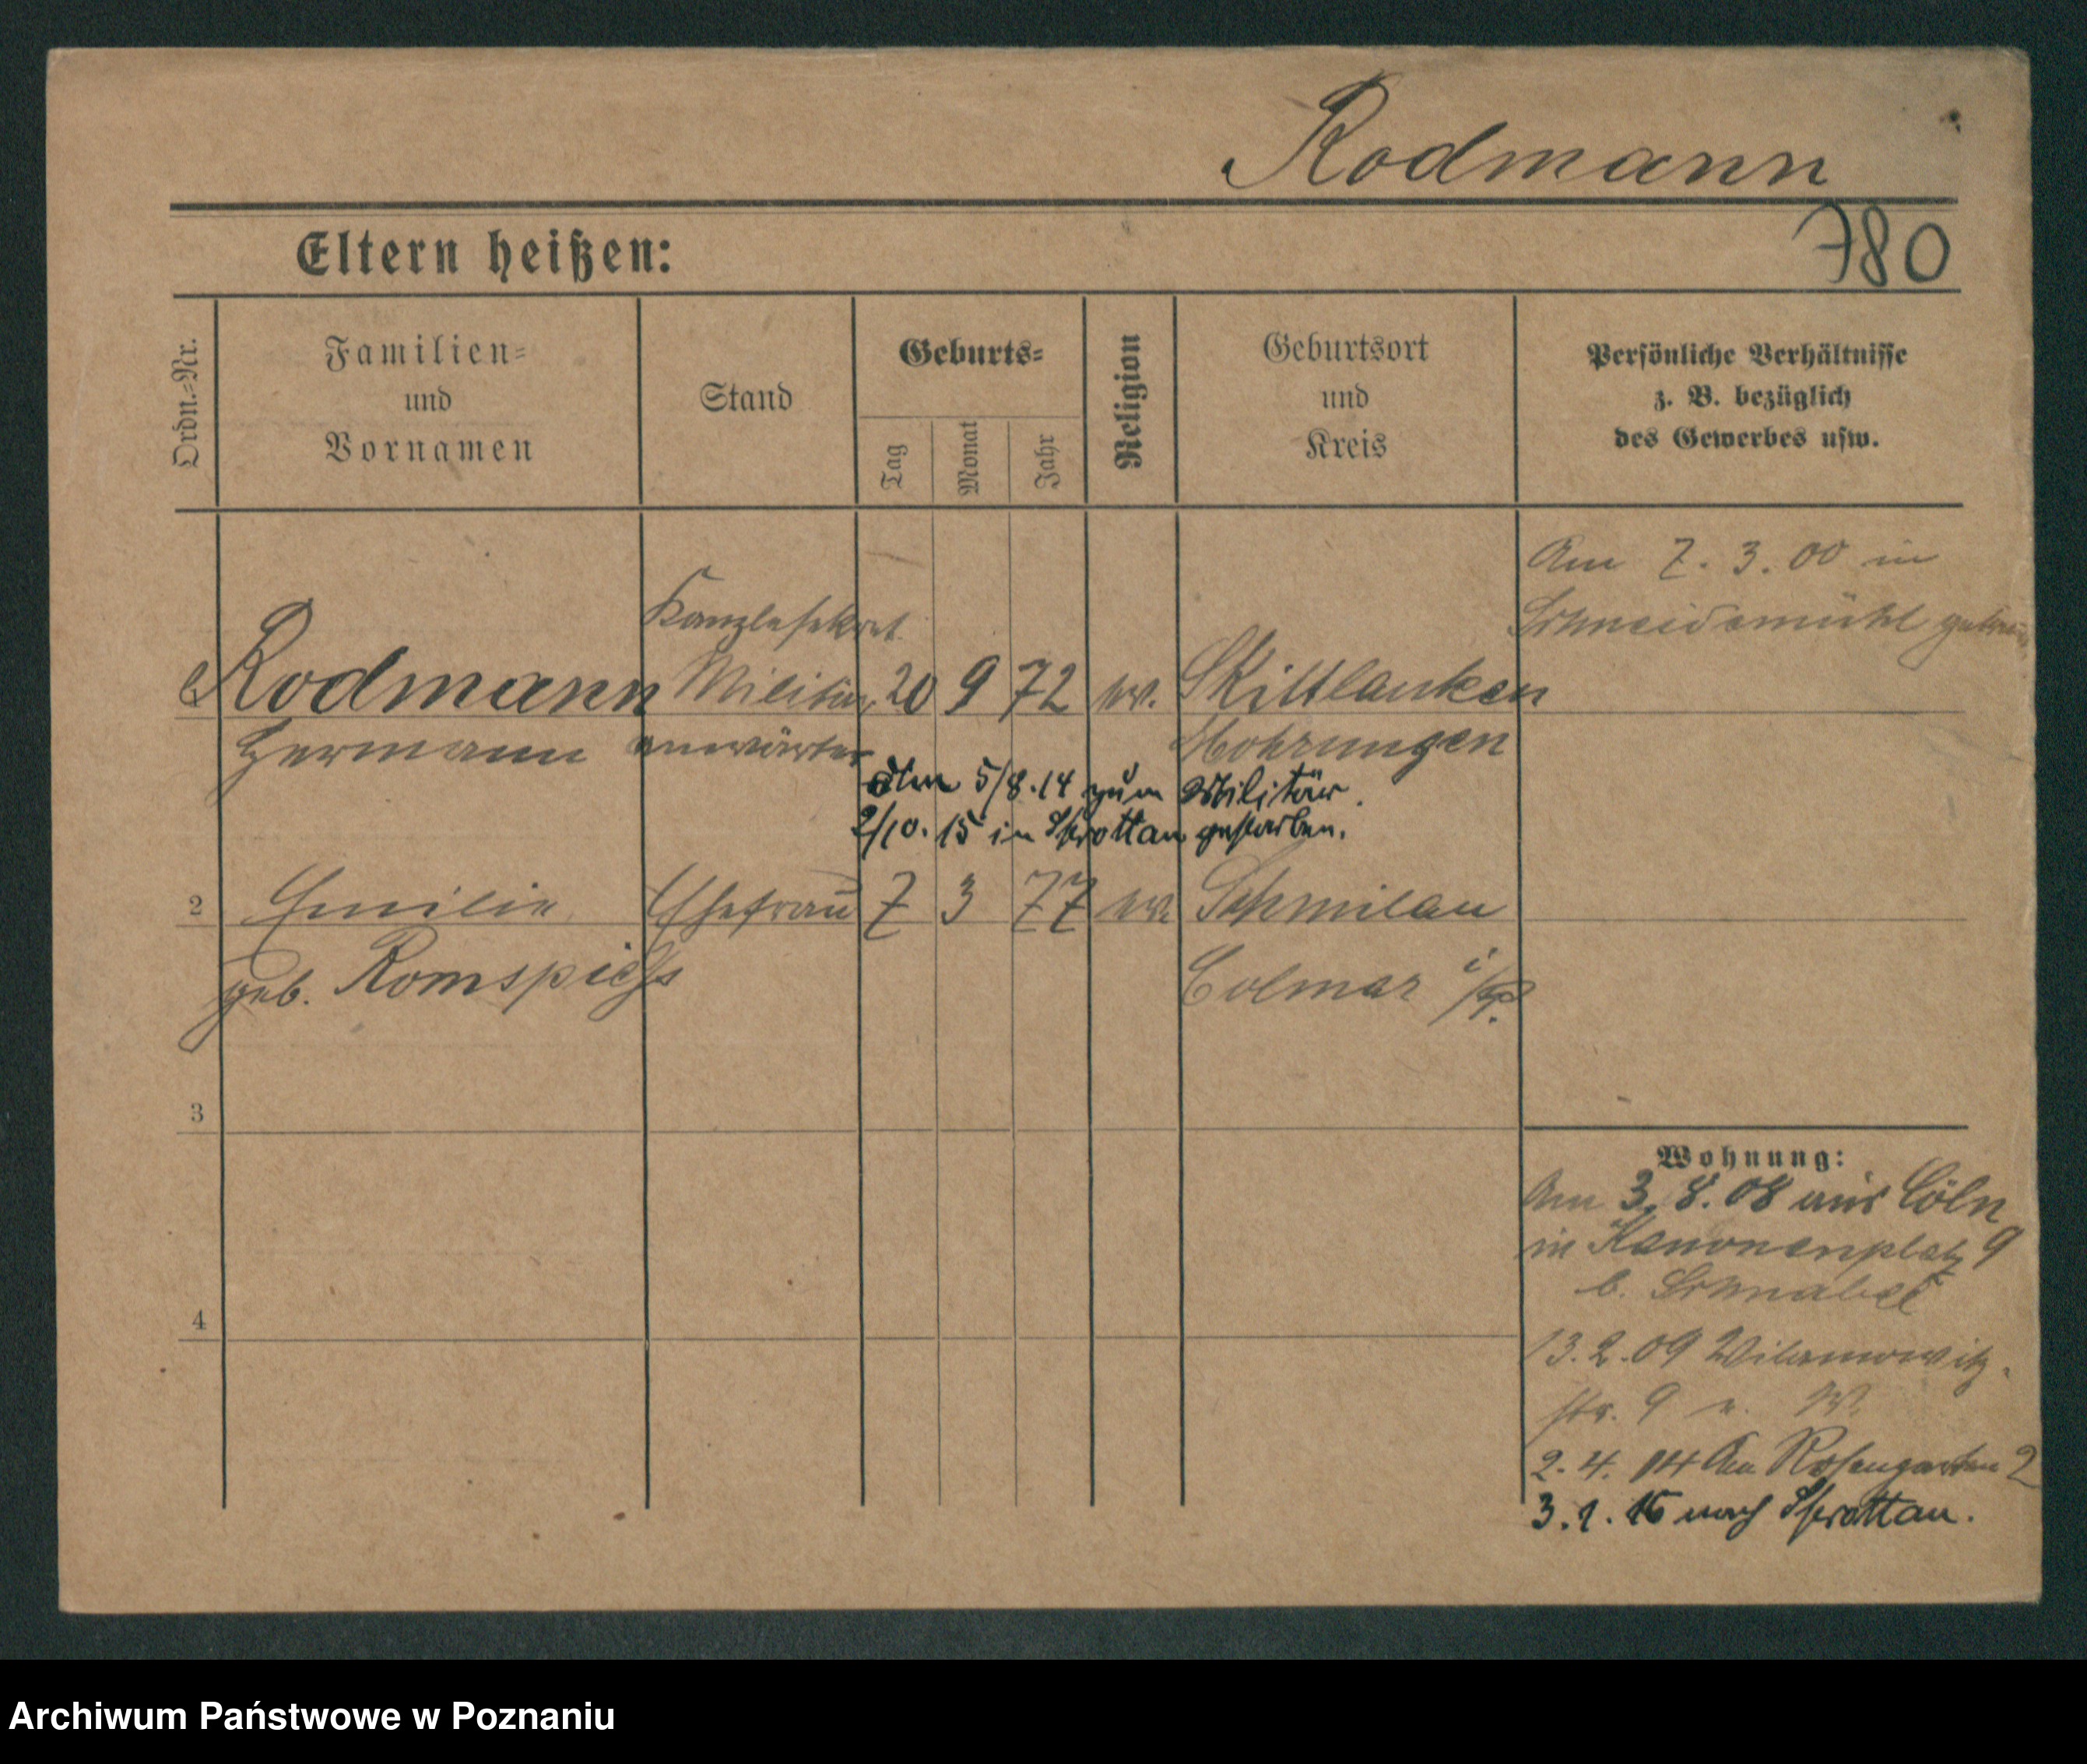 Rodmann
780
Eltern heißen:
Ordn.=Nr.
Familien=
und
Vornamen
Stand
Geburts=
Tag
Monat
Jahr
Religion
Geburtsort
und
Kreis
Persönliche Verhältnisse
z. B. bezüglich
des Gewerbes usw.
Am 7. 3. 00 in
Schneidemühl getraut
Kanzleisekret.
Rodmann Militär 20 9 72 ev. Skittlauken
Hermann anwärter Mohrungen
Am 5/8.14 zum Militär.
2/10. 15 in Sprottau gestorben.
2 Emilie Ehefrau 7 3 77 ev. Schmilau
geb. Romspiess Colmar i/P.
3
Wohnung:
Am 3. 8. 08 aus Cöln
in Kanonenplatz 9
b. Schnabel
4
13.2.09 Wilamowitz-
str. 9 e. W.
2. 4. 14 Am Rosengarten 2
3. 1. 16 nach Sprottau.
Archiwum Państwowe w Poznaniu